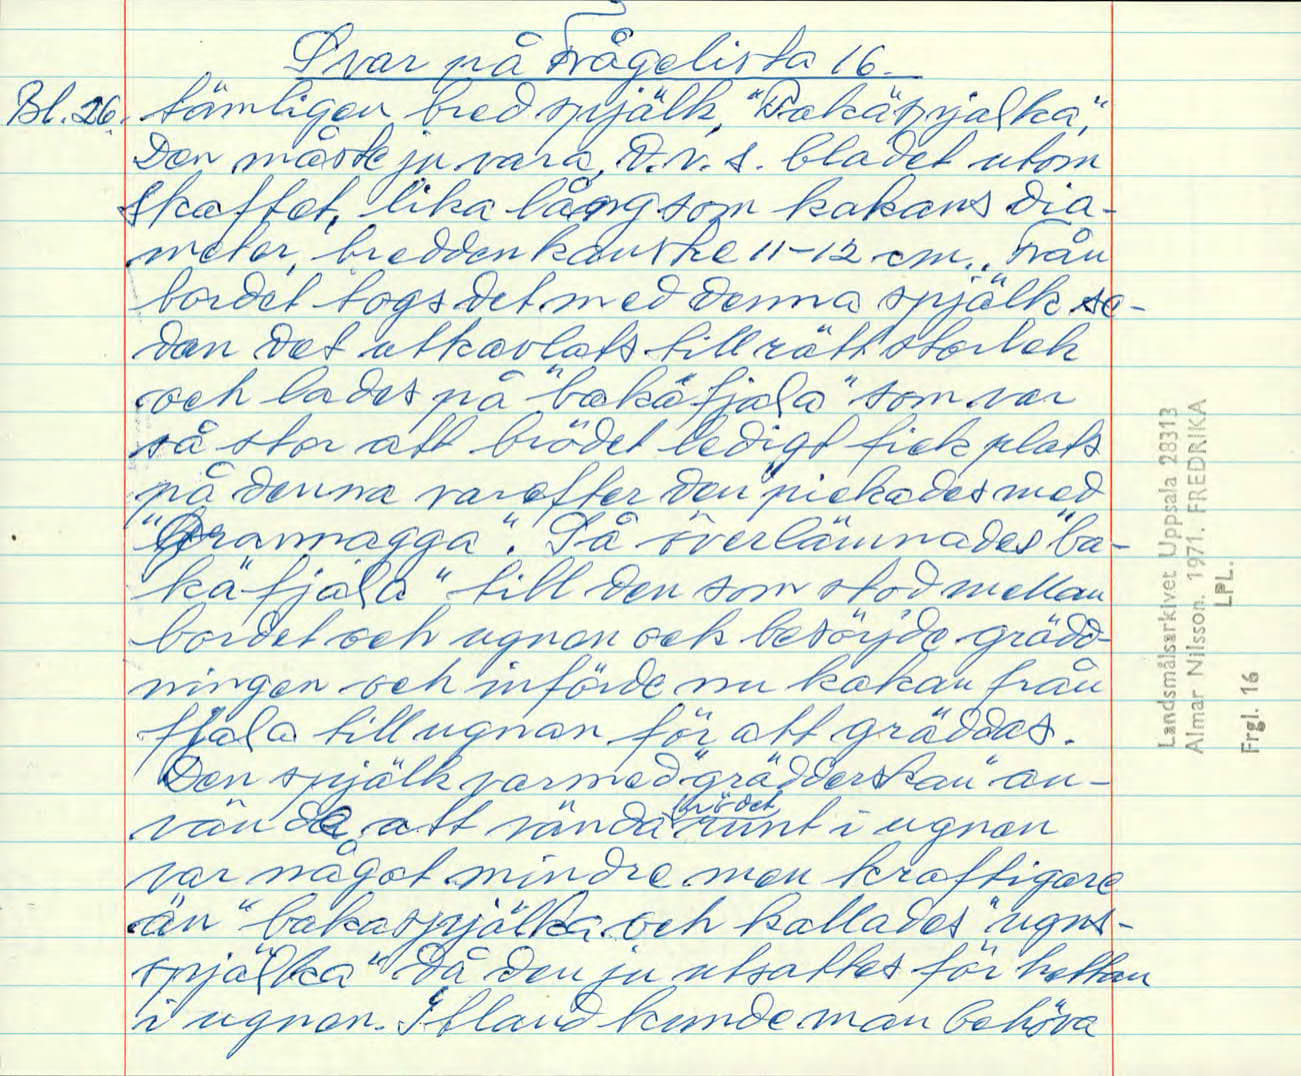 Svar på Frågelista 16.
Bl. 26. tämligen bred spjälk, "Bakäspjalka",
Den måste ju vara, D.v.s. bladet utom
skaftet, lika lång som kakans dia-
meter, bredden kanske 11-12 cm. Från
bordet togs det med denna spjälk se-
dan det utkavlats till rätt storlek
och lades på "bakäfjala" som var
så stor att brödet ledigt fick plats
på denna varefter den pickades med
"Grannagga". Så överlämnades "ba-
käfjala" till den som stod mellan
bordet och ugnen och besörjde grädd-
ningen och införde nu kakan från
fjala till ugnen för att gräddas.
Den spjälk varmed "grädderskan" an-
vände att vända brödet runt i ugnen
var något mindre men kraftigare
än "bakaspjälka och kallades "ugns-
spjälka" då den ju utsattes för hettan
i ugnen. Ibland kunde man behöva
Landsmålsarkivet Uppsala 28313
Almar Nilsson. 1971. FREDRIKA
LPL.
Frgl. 16